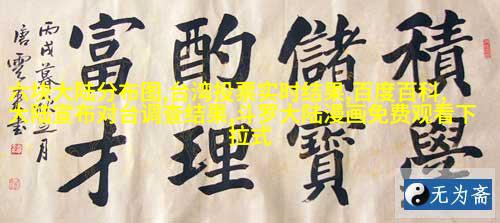 積學
儲寶
酌理
富才
丙戌暮
月
唐雲
六块大陆分布图,台湾投票实时结果,百度百科,
大陆宣布对台调查结果,斗罗大陆漫画免费观看下
拉式
无为斋